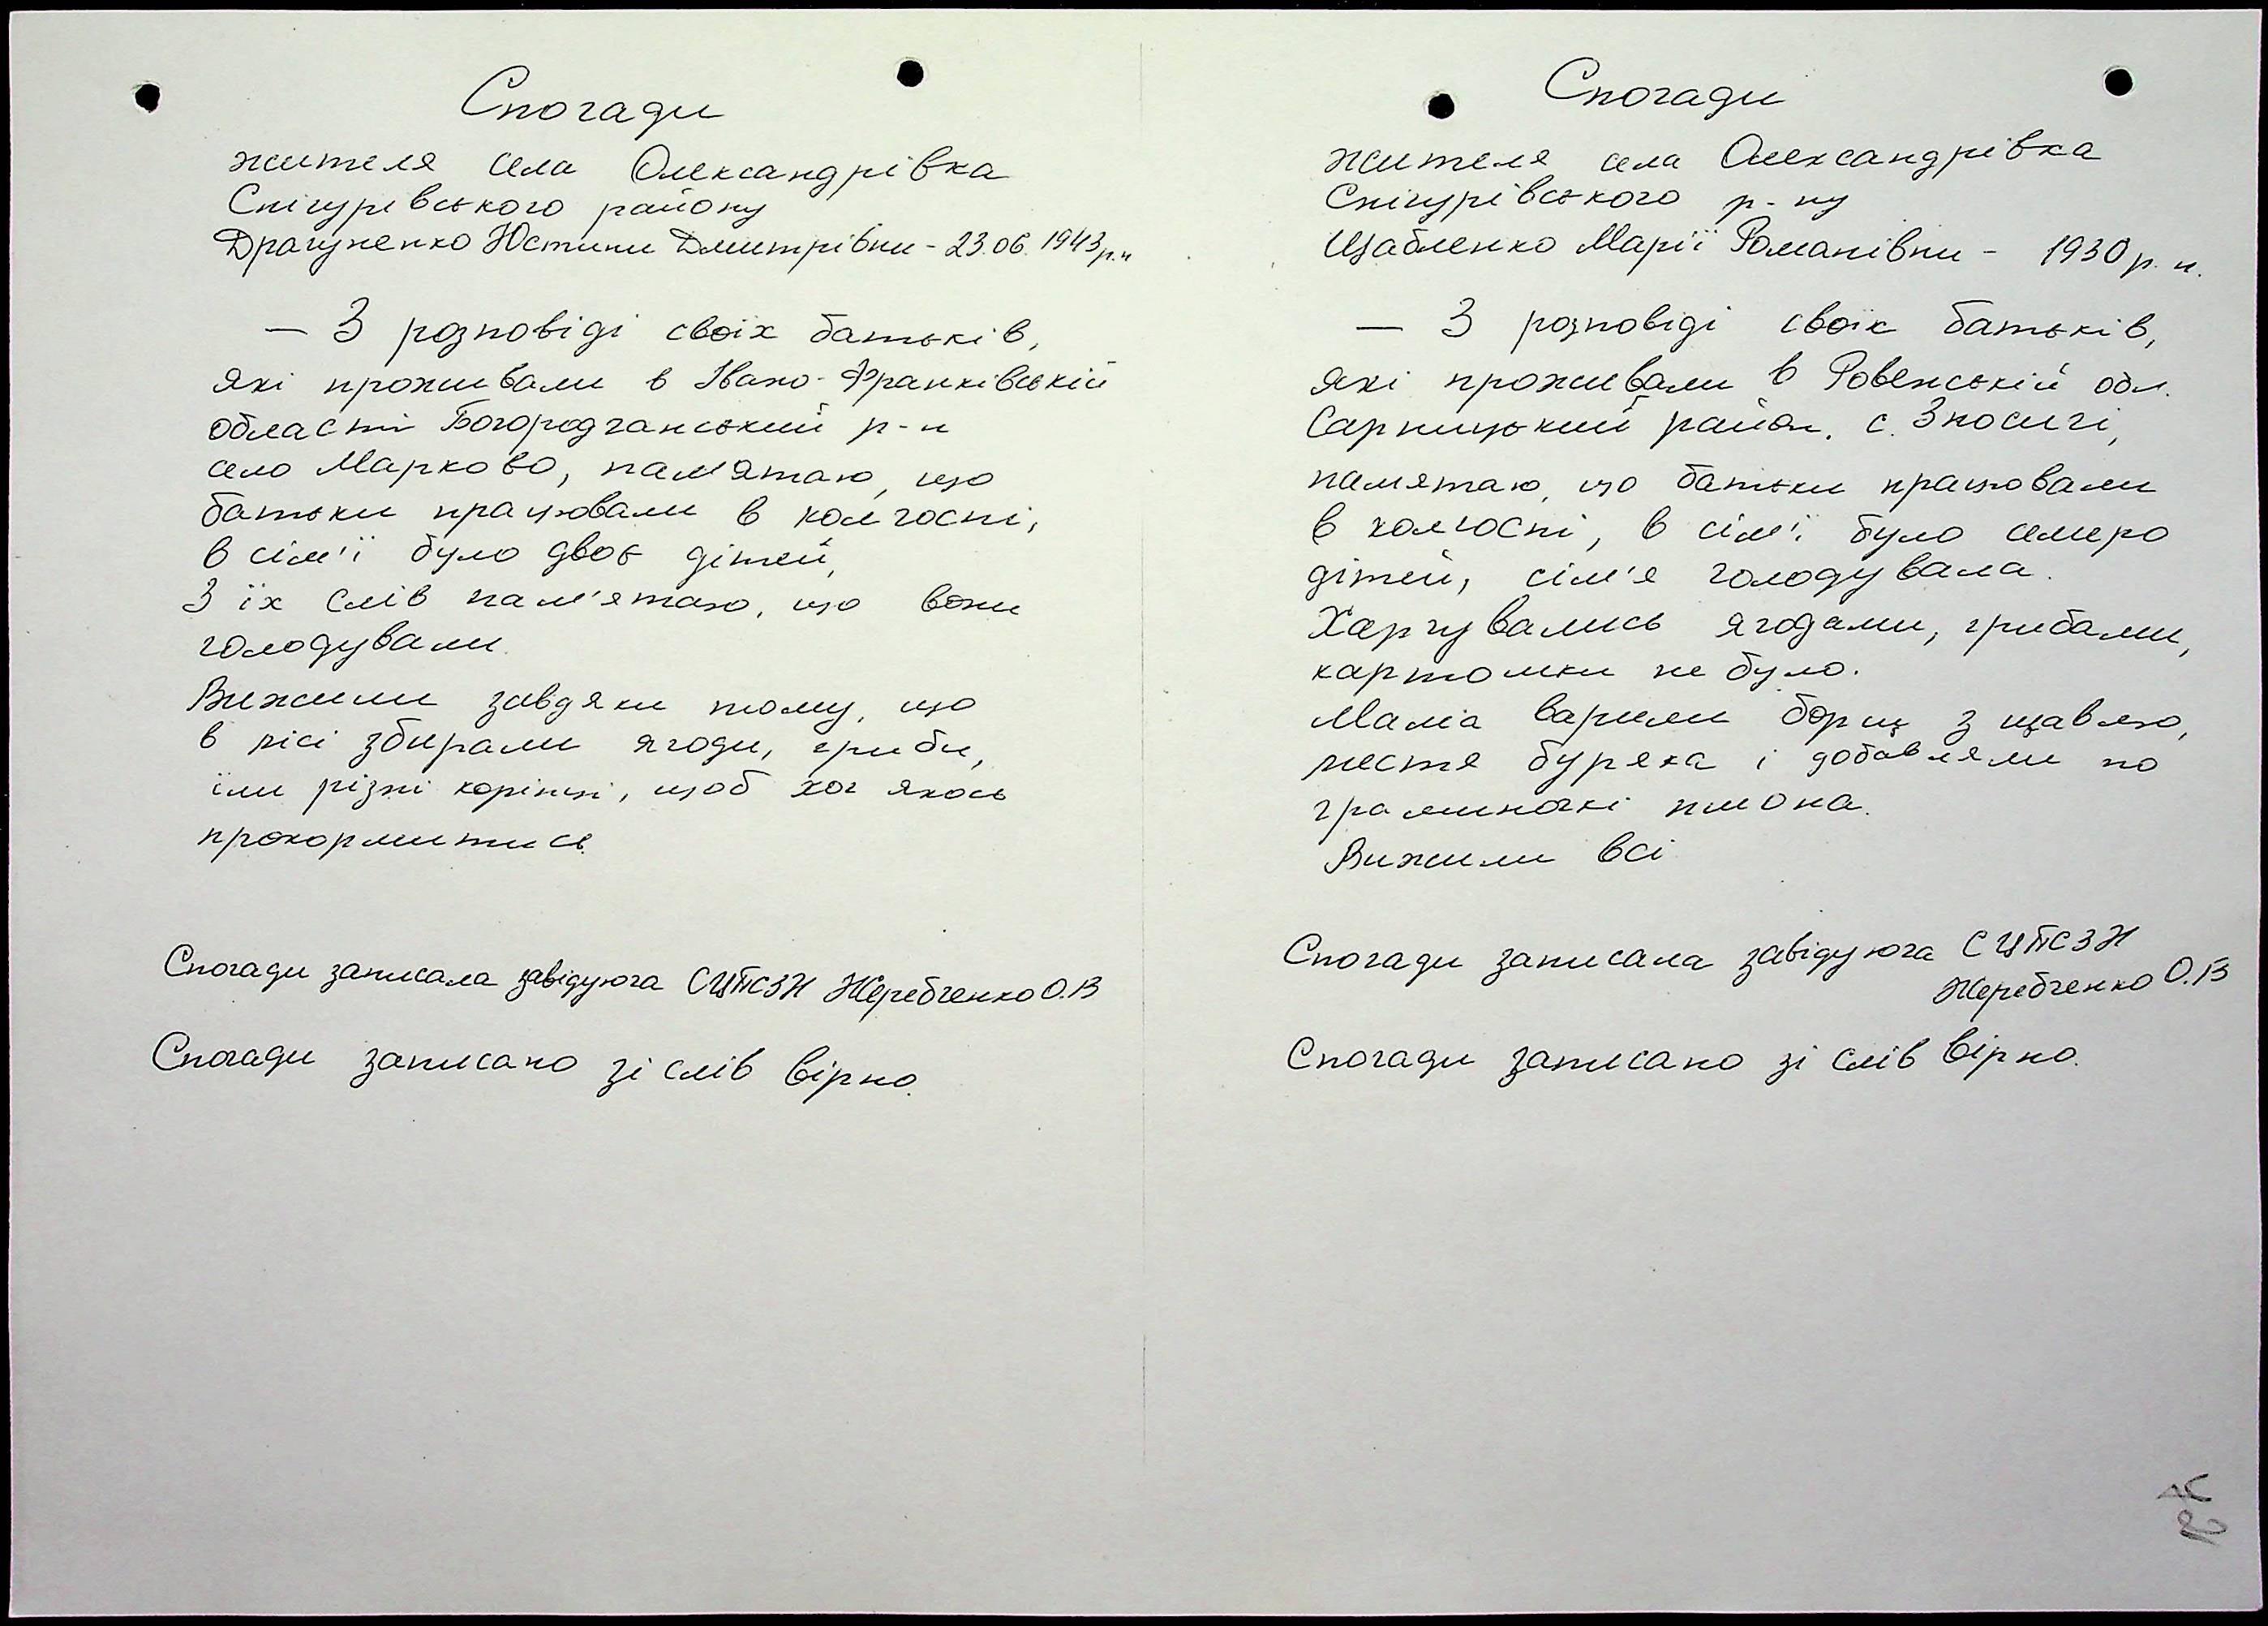 Спогади
жителя села Олександрівка
Снігурівського району
Драгуненко Юстини Дмитрівни - 23.06.1943 р.н
— З розповіді своїх батьків,
які проживали в Івано-Франківській
області Богородчанський р-н
село Марково, пам'ятаю, що
батьки працювали в колгоспі,
в сім'ї було двоє дітей,
З їх слів пам'ятаю, що вони
голодували.
Вижили завдяки тому, що
в лісі збирали ягоди, гриби,
їли різні корінці, щоб хоч якось
прокормитись.
Спогади записала завідуюча СЦПСЗН Жеребченко О.В
Спогади записано зі слів вірно.
Спогади
жителя села Олександрівка
Снігурівського р-ну
Щабленко Марії Романівни - 1930 р.н.
— З розповіді своїх батьків,
які проживали в Ровенській обл.
Сарницький район. с. Зносичі,
памятаю, що батьки працювали
в колгоспі, в сім'ї було семеро
дітей, сім'я голодувала.
Харчувались ягодами, грибами,
картошки не було.
Мама варили борщ з щавлю,
листя буряка і добавляли по
граминочкі пшона.
Вижили всі
Спогади записала завідуюча СЦПСЗН
Жеребченко О.В
Спогади записано зі слів вірно.